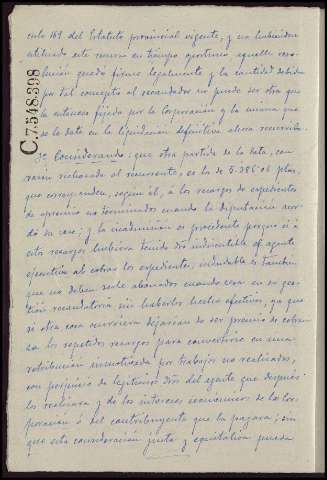 culo 169 del Estatuto provincial vigente, y no habiendose
utilizado este recurso en tiempo oportuno aquella reso-
lución quedó firme legalmente y la cantidad debida
por tal concepto al recaudador no puede ser otra que
la entonces fijada por la Corporación y la misma que
se le data en la liquidación definitiva ahora recurrida.
C.7.548.398
3º Considerando: que otra partida de la data, con
razón rechazada al recurrente, es la de 5.286'06 ptas,
que corresponden, según él, a los recargos de expedientes
de apremio no terminados cuando la Diputación acor-
dó su cese; y la inadmisión es procedente porque si a
estos recargos hubiera tenido dro indiscutible el agente
ejecutivo al cobrar los expedientes, indudable es tambien
que no deben serle abonados cuando cesa en su ges-
tión recaudatoria sin haberlos hecho efectivos, ya que
si otra cosa ocurriera dejarian de ser premio de cobran-
za los repetidos recargos para convertirse en una re-
tribución inmotivada por trabajos no realizados,
con perjuicio de legitimos dros del agente que después
los realizara y de los intereses economicos de la Cor-
poración o del contribuyente que la pagara; sin
que esta consideración justa y equitativa pueda